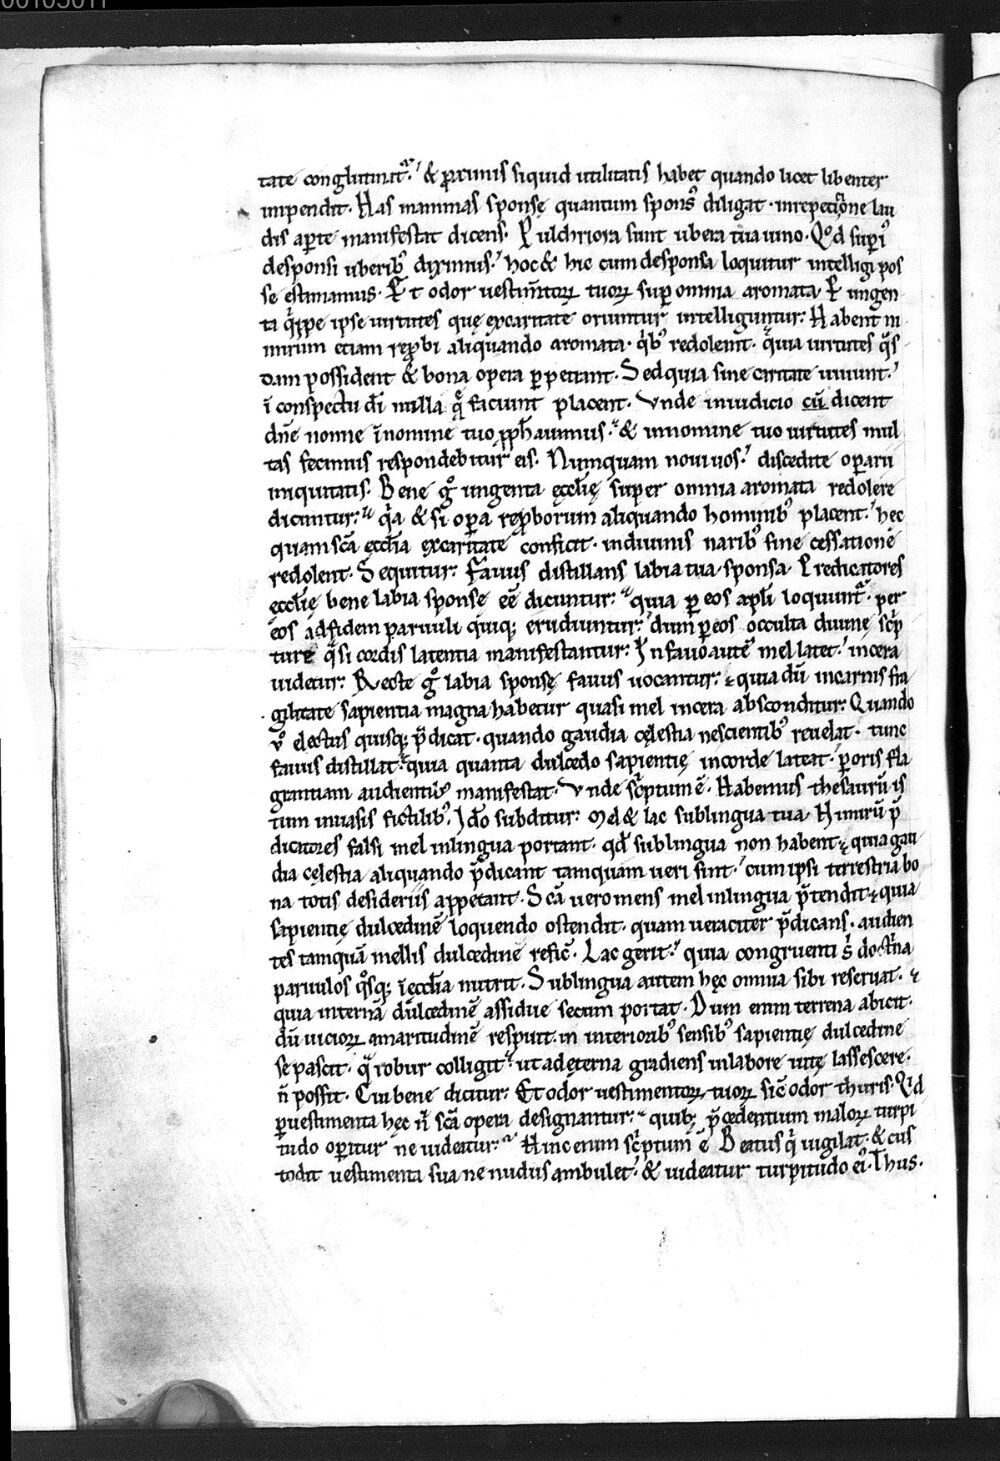 00105011
tate conglutinatᷓ.' & ꝓximis siquid utilitatis habet quando licet libenter
inpendit. Has mammas sponsę quantum spons᾽ diligat. inrepeticͥone lau
dis aꝑte manifestat dicens. Pulchriora sunt ubera tua uino. Qͦd supi᾽
desponsi uberibꝰ diximus.' hoc & hic cum desponsa loquitur intelligi pos
se estimamus. Et odor uestim̅torꝝ tuorꝝ suꝑ omnia aromata. P ungen
ta qͥppe ipse uirtutes quę excaritate oriuntur intelliguntur: Habent ni
mirum etiam reꝓbi aliquando aromata. qͥbꝰ redolent. qͥa uirtutes qͣs
dam possident & bona opera ꝑpetrant. Sed quia sine caritate uiuunt.'
ī conspectu dī nulla q̄ faciunt placent. Vnde iniudicio cū dicent
dn̄e nonne īnomine tuo ꝓph̄auimus.' & innomine tuo uirtutes mul
tas fecimus respondebitur eis. Numquam noui uos.' discedite oꝑarii
iniquitatis. Bene gͦ ungenta ęcclīę super omnia aromata redolere
dicuntur: qͥa & si oꝑa reꝓborum aliquando hominibꝰ placent.' hec
quam scā ecclīa excaritate conficit. indiuinis naribꝰ sine cessatione
redolent. Sequitur: Fauus distillans labia tua sponsa. Predicatores
ęcclīę bene labia sponse eē dicuntur: quia ꝑ eos apl̄i loquuntᷓ. per
eos adfidem paruuli quiqꝫ erudiuntur: dum ꝑ eos occulta diuinę sc̄p
ture qͣsi cordis latentia manifestantur: In fauo autē mel latet.' incera
uidetur: Recte gͦ labia sponsę fauus uocantur: quia dū incarnis fra
gilitate sapientia magna habetur quasi mel incera absconditur: Quando
uͦ electus quisqꝫ p̄dicat. quando gaudia cęlestia nescientibꝰ reuelat. tunc
fauus distillat. quia quanta dulcedo sapientię incorde lateat. ꝑ oris fla
grantiam audientibꝰ manifestat. Vnde sc̄ptum ē. Habemus thesaurū is
tum inuasis fictilibꝰ. Ido̅ subditur: Mel & lac sublingua tua. Nimirū p̄
dicatores falsi mel inlingua portant. qd̄ sublingua non habent. quia gau
dia cęlestia aliquando p̄dicant tamquam ueri sint.' cum ipsi terrestria bo
na totis desideriis appetant. Scā uero mens mel inlingua p̄tendit. quia
sapientię dulcedinē loquendo ostendit. quam ueraciter p̄dicans. audien
tes tamquā mellis dulcedine reficͥ. Lac gerit.' quia congruenti s᾽ doctͥna
paruulos qͦsqꝫ īecclīa nutrit. Sublingua autem hęc omnia sibi reseruat.
quia internā dulcedinē assidue secum portat. Dum enim terrena abicit.
dū uiciorꝝ amaritudinē respuit. in interioribꝰ sensibꝰ sapientię dulcedine
se pascit. qͣ robur colligit. ut ad ęterna gradiens inlabore uitę lassescere
n̄ possit. Cui bene dicitur: Et odor uestimentorꝝ tuorꝝ sic̄ odor thuris. Qͥd
ꝑ uestimenta hęc n̄ scā opera designantur. quibꝫ p̄cedentium malorꝝ turpi
tudo oꝑitur ne uideatur. Hinc enim sc̄ptum ē Beatus qͥ uigilat. & cus
todit uestimenta sua ne nudus ambulet.' & uideatur turpitudo ei᾽. Thus.